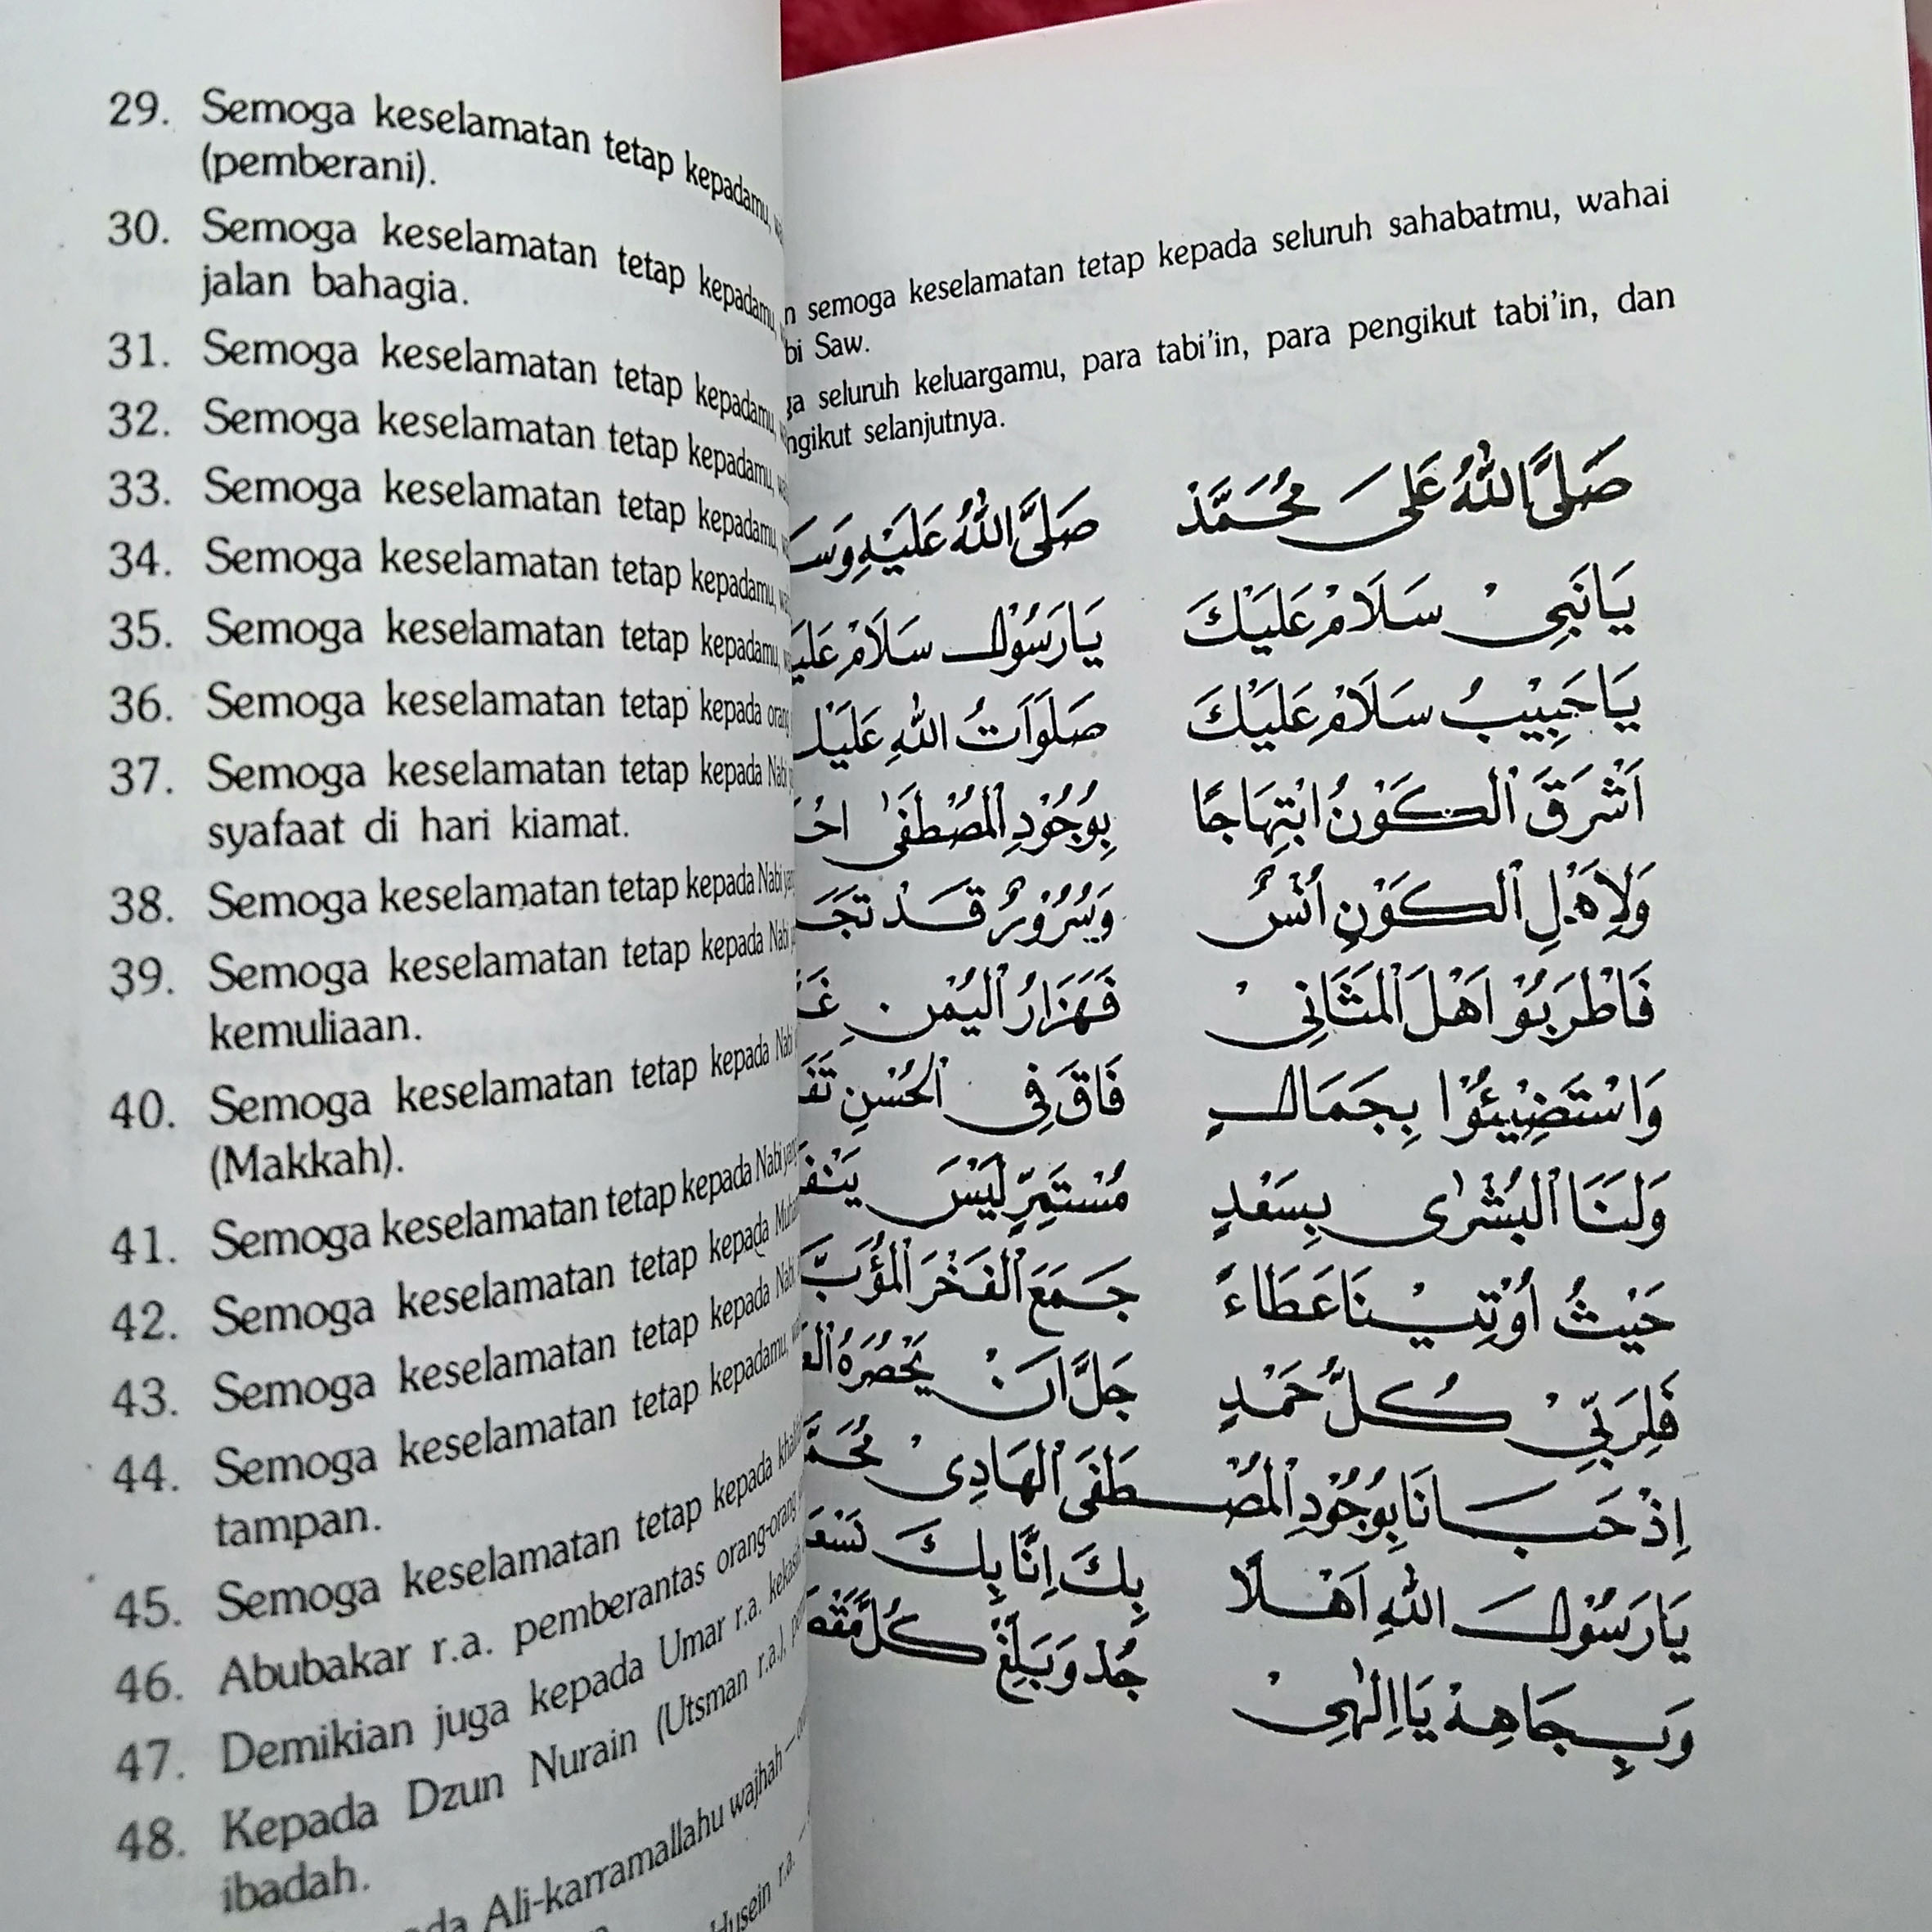 29. Semoga keselamatan tetap kepadamu,
(pemberani).
30. Semoga keselamatan tetap kepadamu,
jalan bahagia.
31. Semoga keselamatan tetap kepadamu,
32. Semoga keselamatan tetap kepadamu,
33. Semoga keselamatan tetap kepadamu,
34. Semoga keselamatan tetap kepadamu,
35. Semoga keselamatan tetap kepadamu,
36. Semoga keselamatan tetap kepada orang
37. Semoga keselamatan tetap kepada Nabi
syafaat di hari kiamat.
38. Semoga keselamatan tetap kepada Nabi
39. Semoga keselamatan tetap kepada Nabi
kemuliaan.
40. Semoga keselamatan tetap kepada Nabi
(Makkah).
41. Semoga keselamatan tetap kepada Nabi yang
42. Semoga keselamatan tetap kepada
43. Semoga keselamatan tetap kepada Nabi
44. Semoga keselamatan tetap kepadamu,
tampan.
45. Semoga keselamatan tetap kepada
46. Abubakar r.a. pemberantas orang-orang
47. Demikian juga kepada Umar r.a. kekasih
48. Kepada Dzun Nurain (Utsman r.a.),
ibadah.
Ali-karramallahu wajhah –
Husein r.a. –
semoga keselamatan tetap kepada seluruh sahabatmu, wahai
Saw.
seluruh keluargamu, para tabi'in, para pengikut tabi'in, dan
selanjutnya.
صَلَّى اللهُ عَلَى مُحَمَّدْ صَلَّى اللهُ عَلَيْهِ
يَانَبِيْ سَلَامْ عَلَيْكَ يَارَسُوْلْ سَلَامْ
يَاحَبِيْبُ سَلَامْ عَلَيْكَ صَلَوَاتُ اللهِ
أَشْرَقَ الْكَوْنُ ابْتِهَاجًا بِوُجُوْدِ الْمُصْطَفٰى
وَلِاَهْلِ الْكَوْنِ اُنْسٌ وَسُرُوْرٌ قَدْ
فَاطْرَبُوْا اَهْلَ الْمَثَانِيْ فَهَزَارُ الْيُمْنِ
وَاسْتَضِيْئُوْا بِجَمَالٍ فَاقَ فِى الْحُسْنِ
وَلَنَا الْبُشْرٰى بِسَعْدٍ مُسْتَمِرٍّ لَيْسَ
حَيْثُ اُوْتِيْنَا عَطَاءً جَمَعَ الْفَخْرَ
فَلِرَبِّيْ كُلُّ حَمْدٍ جَلَّ اَنْ يَحْصُرَهُ
اِذْ حَبَانَا بِوُجُوْدِ الْمُصْطَفَى الْهَادِيْ
يَارَسُوْلَ اللهِ اَهْلًا بِكَ اِنَّا بِكَ
وَبِجَاهِهْ يَا اِلٰهِيْ جُدْ وَبَلِّغْ كُلَّ